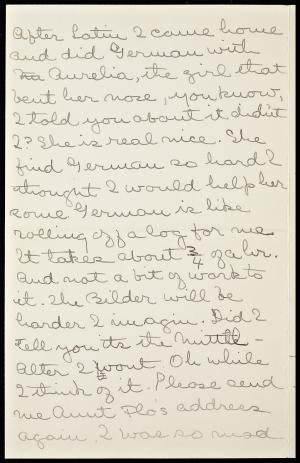 After Latin I came home
and did German with
Aurelia, the girl that
bent her nose, you know,
I told you about it didn't
I? She is real nice. She
find German so hard I
thought I would help her
some German is like
rolling off a log for me
It takes about 3/4 of a hr.
And not a bit of work to
it. The Bilder will be
harder I imagin. Did I
tell you its the
alter I wont. Oh while
I think of it. Please send
me Aunt Flo's address
again, I was so mad